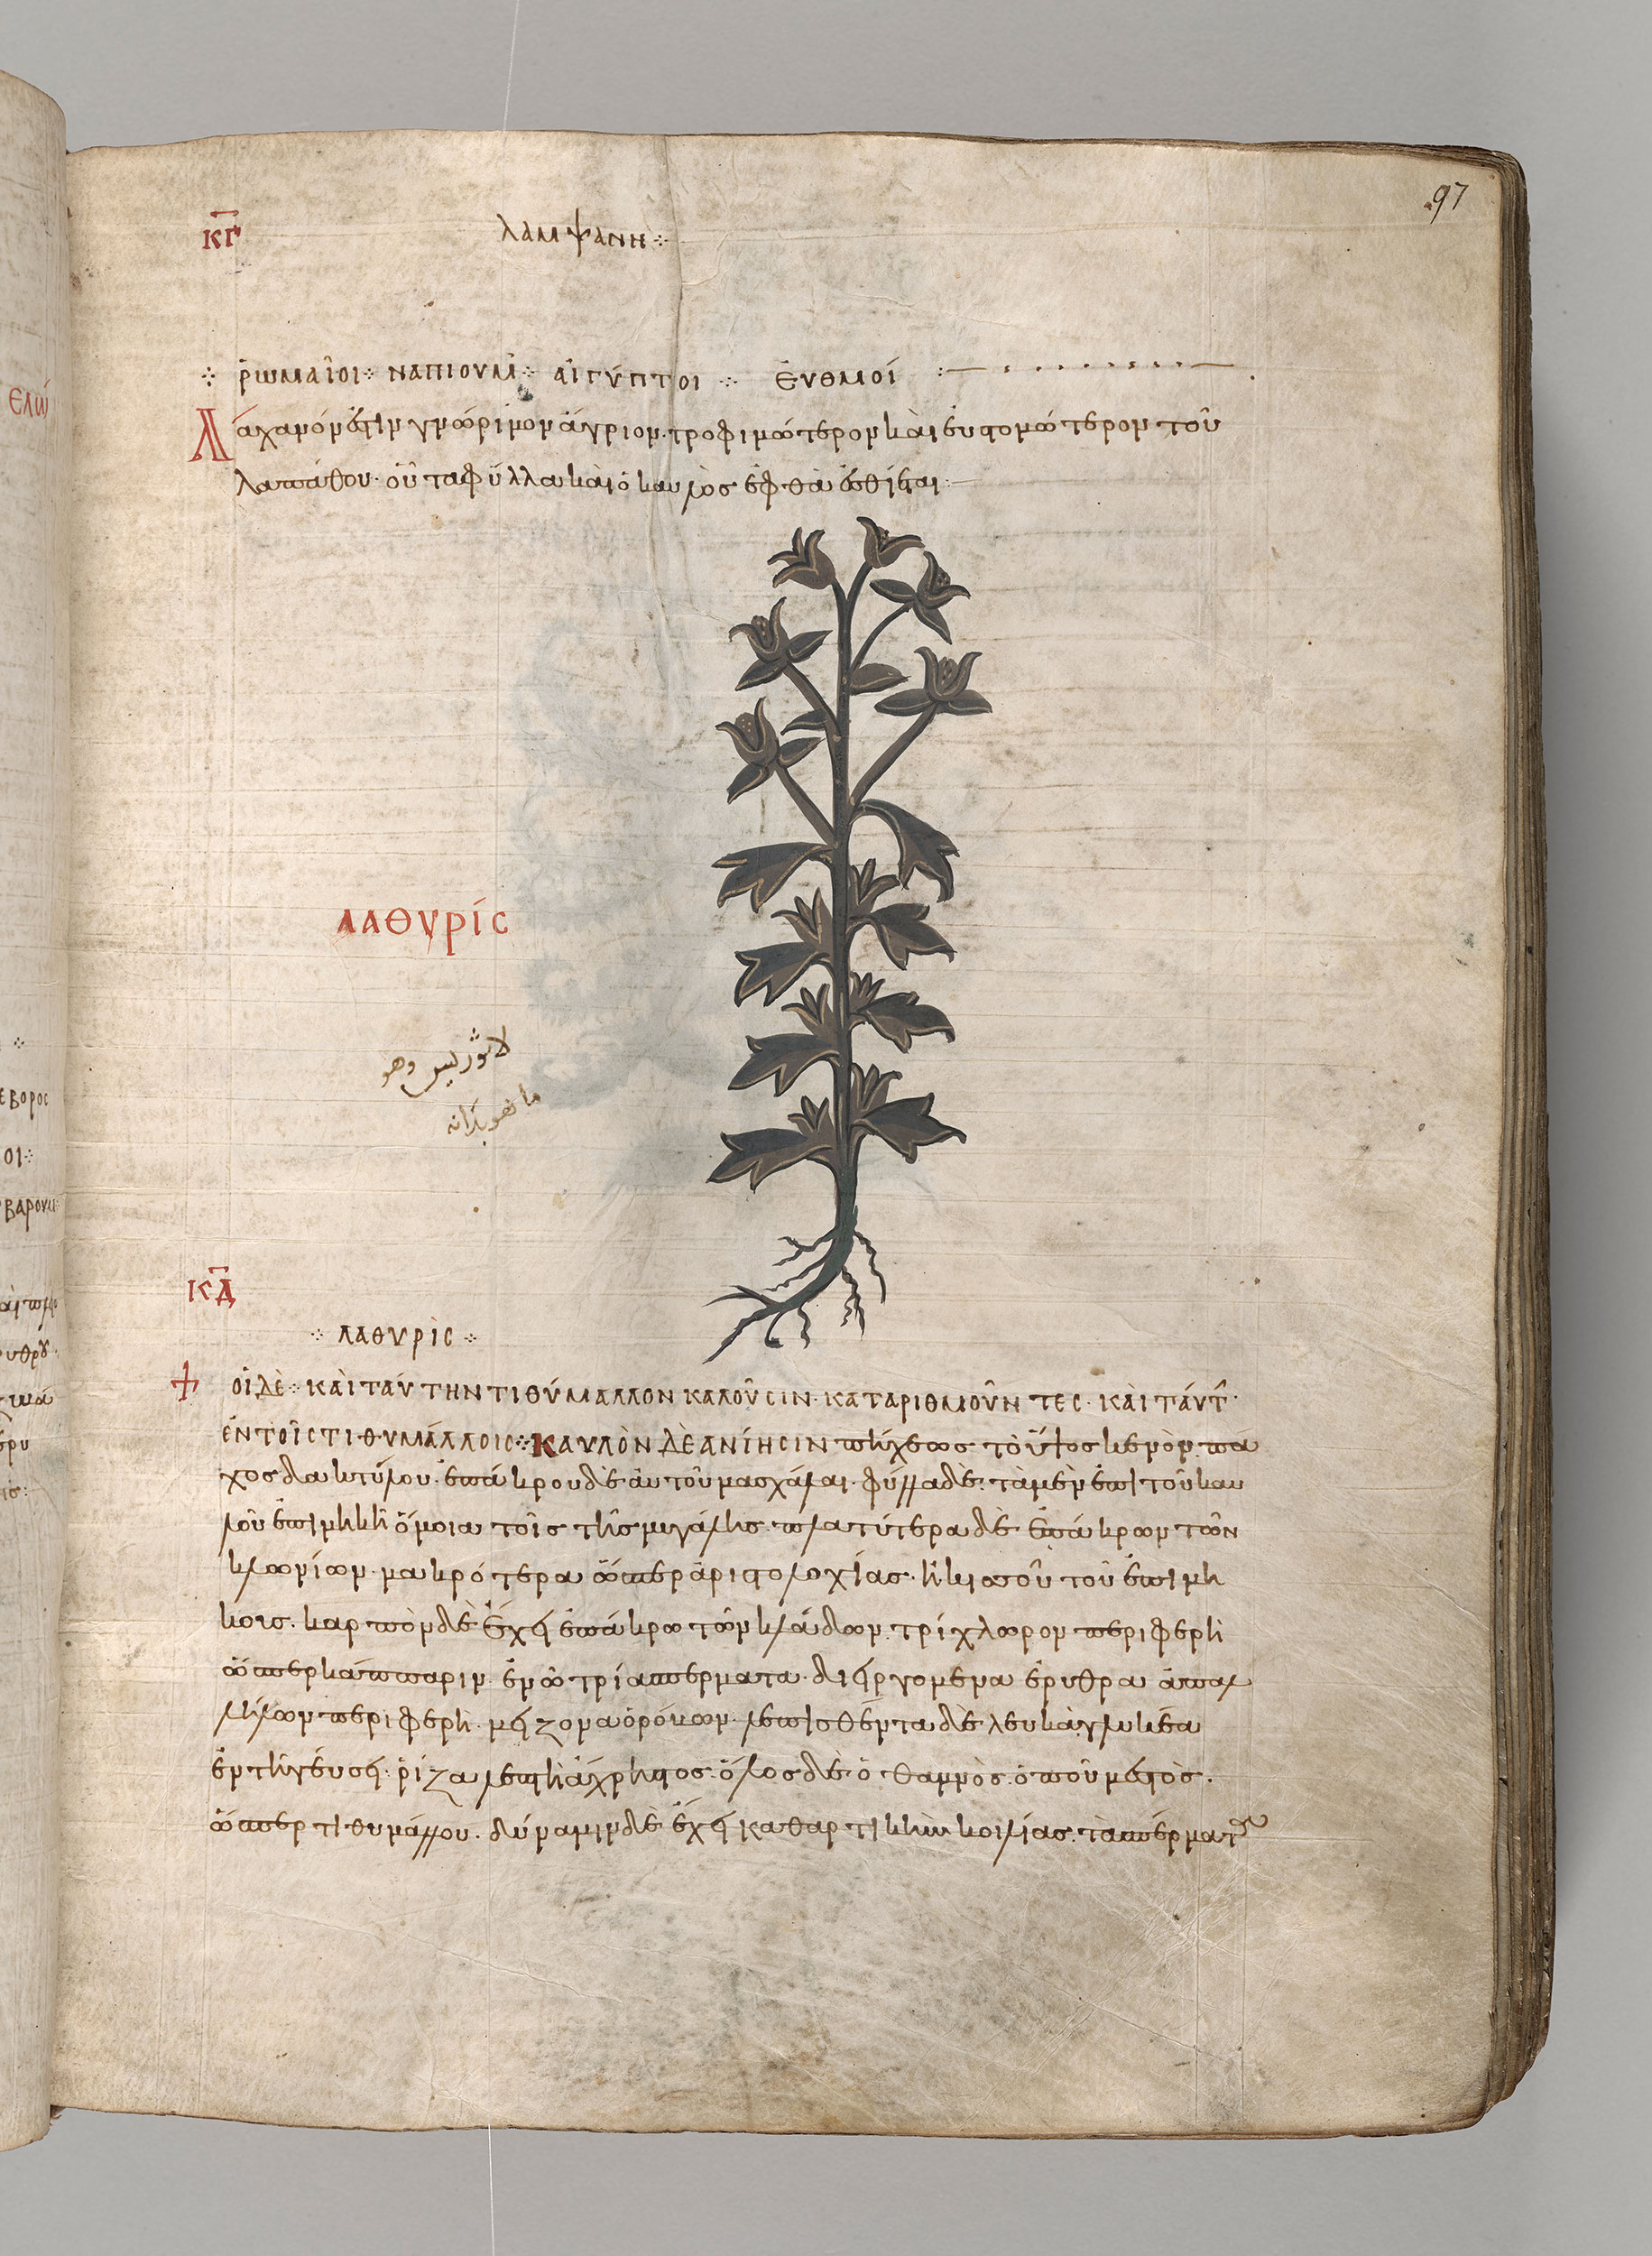 97
κγ λαμψάνη
ῥωμαῖοι ναπιουμ αἰγύπτοι ἐυθμοί
Λάχανόν ἐστιν γνώριμον ἄγριον· τροφιμώτερον κὰι ἐυστομώτερον τοῦ
λαπάθου· οὗ τα φύλλα κὰι ὁ καυλὸς ἐφθὰ ἐσθίεται
λαθυρίς
لاثوريس وهو
ماهوبدانه
κδ
λαθυρὶς
οἱ δὲ κὰι τάυτην τιθύμαλλον καλοῦσιν· καταριθμοῦντες· κὰι τάυτ
ἐν τοῖς τιθυμάλλοις Καυλὸν δὲ ἀνίησιν πήχεως τὸ ὕψος κενὸν· πα
χος δακτύλου· ἐπάκρου δὲ ἀυτοῦ μασχάλαι· φύλλα δὲ· τὰ μὲν ἐπὶ τοῦ καυ
λοῦ ἐπιμήκη ὅμοια τοῖς τῆς μυγάλης· πλατύτερα δὲ ἐπάκρων τῶν
κλωνίων· μακρότερα ὥσπερ ἀριστολοχίας· ἢ κισσοῦ τοῦ ἐπιμή
κοις· καρπὸν δὲ ἔχει ἐπάκρω τῶν κλάδων· τρίχλωρον περιφερῆ
ὥσπερ κάππαριν· ἐν ὧ τρία σπερματα· διειργομενα ἐρυθρα ἀπαλ
λήλων περιφερῆ· μείζονα ὀρόυων· λεπισθέντα δὲ λευκὰ γλυκέα
ἐν τῆ γέυσει· ῥίζα λεπτὴ ἄχρηστος· ὅλος δὲ ὁ θαμνὸς· ὀποῦ μεστὸς·
ὥσπερ τιθυμάλλου· δύναμιν δὲ ἔχει καθαρτικὴν κοιλίας· τὰ σπέρματα